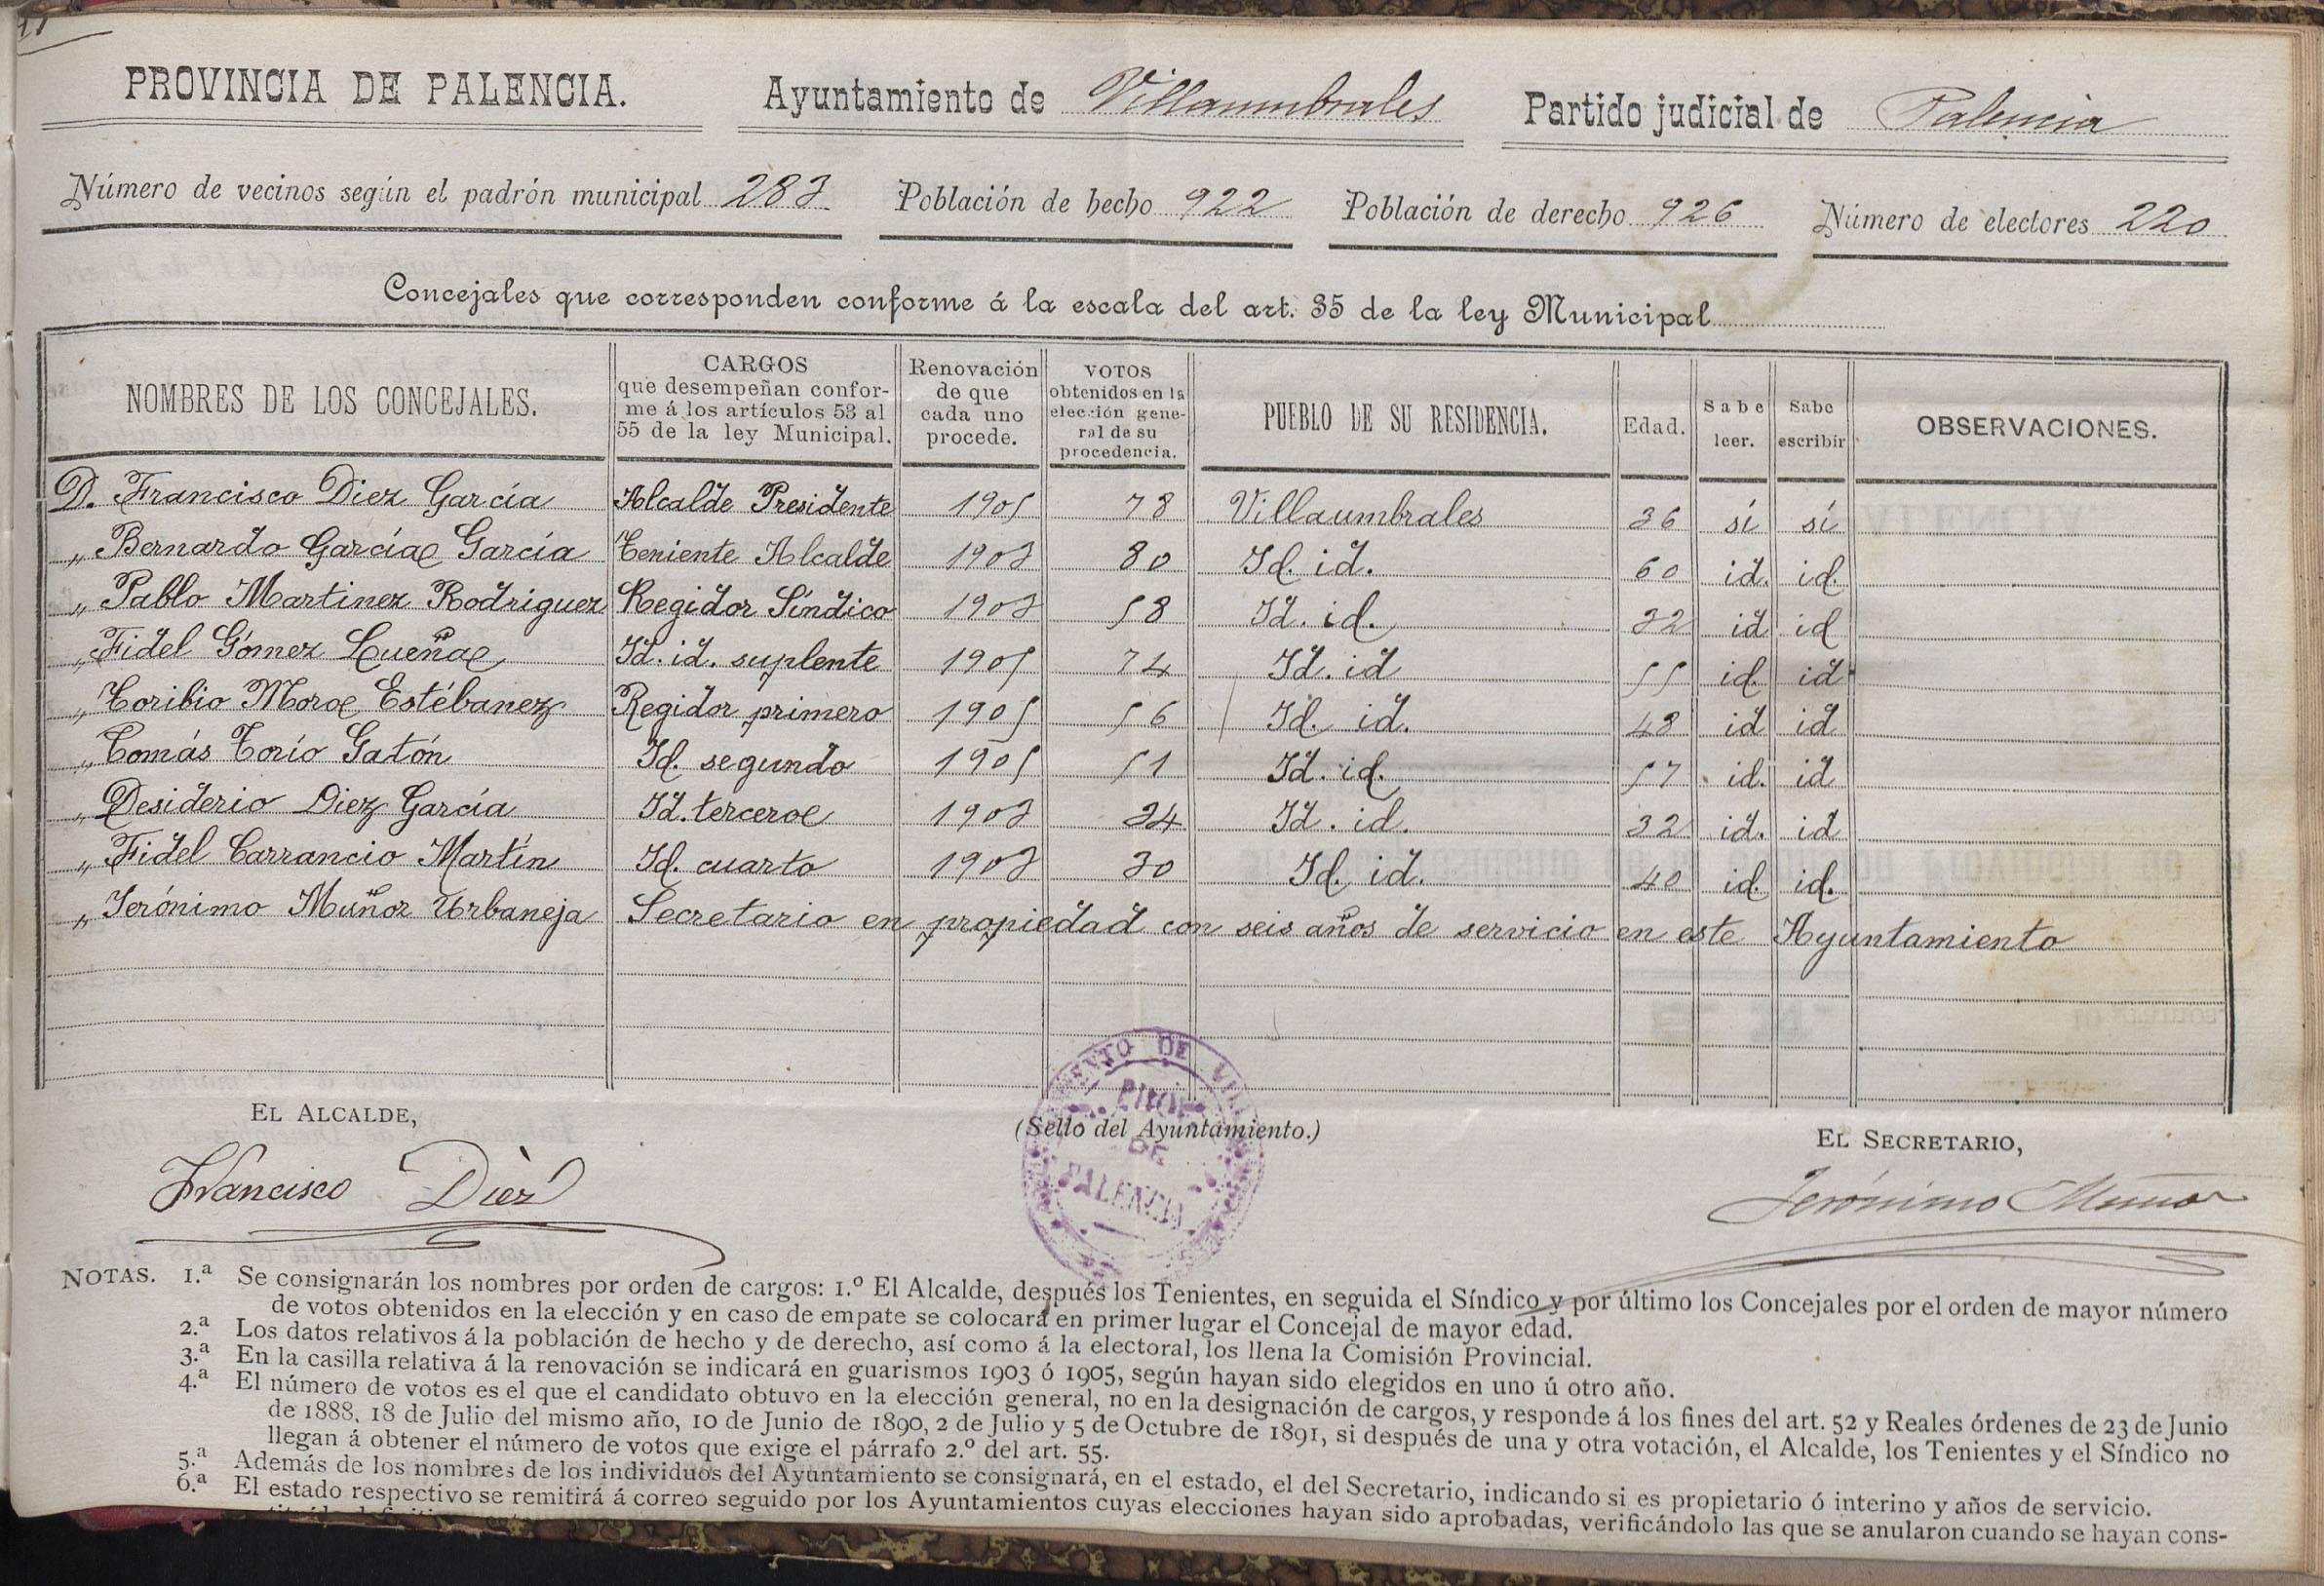 PROVINCIA DE PALENCIA. Ayuntamiento de Villaumbrales Partido judicial de Palencia
Número de vecinos según el padrón municipal 283 Población de hecho 922 Población de derecho 926 Número de electores 220
Concejales que corresponden conforme á la escala del art. 35 de la ley Municipal
NOMBRES DE LOS CONCEJALES. CARGOS que desempeñan confor-me á los artículos 53 al 55 de la ley Municipal. Renovación de que cada uno procede. VOTOS obtenidos en la elección gene-ral de su procedencia. PUEBLO DE SU RESIDENCIA. Edad. Sabe leer. Sabe escribir OBSERVACIONES.
D. Francisco Diez García Alcalde Presidente 1905 78 Villaumbrales 36 sí sí
„ Bernardo García García Teniente Alcalde 1903 80 Id. id. 60 id. id.
„ Pablo Martinez Rodriguez Regidor Síndico 1903 58 Id. id. 32 id id
„ Fidel Gómez Lueña Id. id. suplente 1905 74 Id. id 55 id. id
„ Toribio Moro Estébanez Regidor primero 1905 56 Id. id. 48 id id
„ Tomás Torío Gatón Id. segundo 1905 51 Id. id. 57 id. id
„ Desiderio Diez García Id. tercero 1903 34 Id. id. 32 id. id
„ Fidel Carrancio Martín Id. cuarto 1903 30 Id. id. 40 id. id.
„ Jerónimo Muñoz Urbaneja Secretario en propiedad con seis años de servicio en este Ayuntamiento
EL ALCALDE, (Sello del Ayuntamiento.) EL SECRETARIO,
PALENCIA
Francisco Diez Jerónimo Muñoz
NOTAS. 1.ª Se consignarán los nombres por orden de cargos: 1.º El Alcalde, después los Tenientes, en seguida el Síndico y por último los Concejales por el orden de mayor número
de votos obtenidos en la elección y en caso de empate se colocará en primer lugar el Concejal de mayor edad.
2.ª Los datos relativos á la población de hecho y de derecho, así como á la electoral, los llena la Comisión Provincial.
3.ª En la casilla relativa á la renovación se indicará en guarismos 1903 ó 1905, según hayan sido elegidos en uno ú otro año.
4.ª El número de votos es el que el candidato obtuvo en la elección general, no en la designación de cargos, y responde á los fines del art. 52 y Reales órdenes de 23 de Junio
de 1888, 18 de Julio del mismo año, 10 de Junio de 1890, 2 de Julio y 5 de Octubre de 1891, si después de una y otra votación, el Alcalde, los Tenientes y el Síndico no
llegan á obtener el número de votos que exige el párrafo 2.º del art. 55.
5.ª Además de los nombres de los individuos del Ayuntamiento se consignará, en el estado, el del Secretario, indicando si es propietario ó interino y años de servicio.
6.ª El estado respectivo se remitirá á correo seguido por los Ayuntamientos cuyas elecciones hayan sido aprobadas, verificándolo las que se anularon cuando se hayan cons-